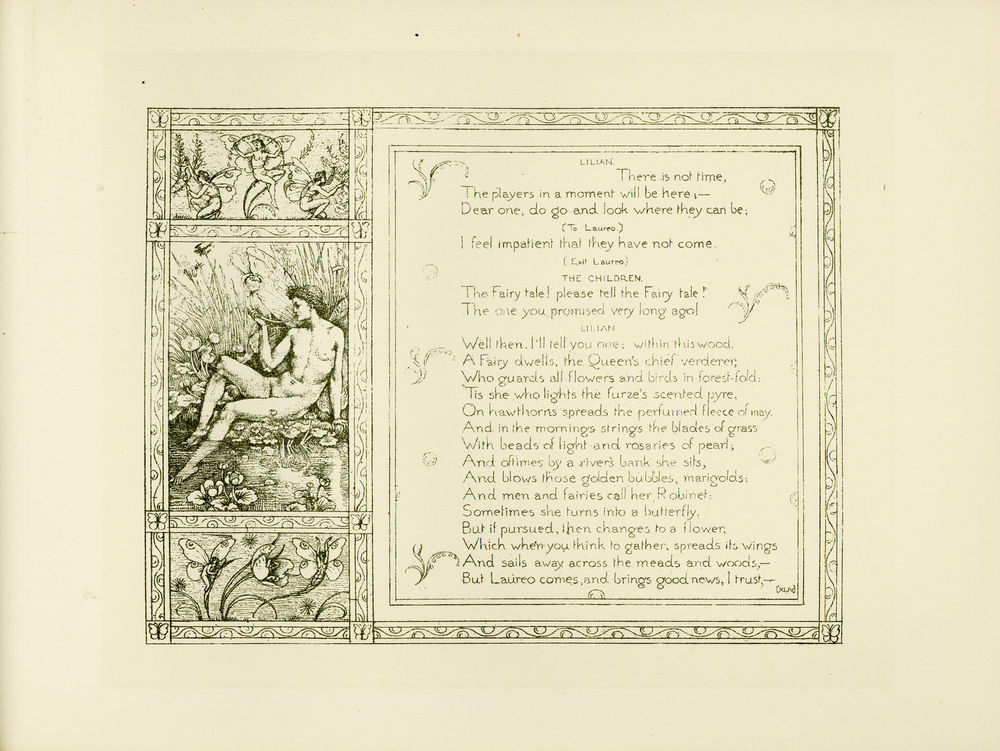 LILIAN.
There is not time,
The players in a moment will be here,—
Dear one, do go and look where they can be;
(To Laureo.)
I feel impatient that they have not come.
(Exit Laureo)
THE CHILDREN.
The Fairy tale! please tell the Fairy tale!
The one you promised very long ago!
LILIAN.
Well then, I'll tell you one; within this wood.
A Fairy dwells, the Queen's chief verderer;
Who guards all flowers and birds in forest-fold:
'Tis she who lights the furze's scented pyre,
On hawthorns spreads the perfumed fleece of may.
And in the mornings strings the blades of grass
With beads of light and rosaries of pearl;
And oftimes by a river's bank she sits,
And blows those golden bubbles, marigolds:
And men and fairies call her, Robinet:
Sometimes she turns into a butterfly.
But if pursued, then changes to a flower;
Which when you think to gather, spreads its wings
And sails away across the meads and woods,—
But Laureo comes, and brings good news, I trust,—
(XLIV)